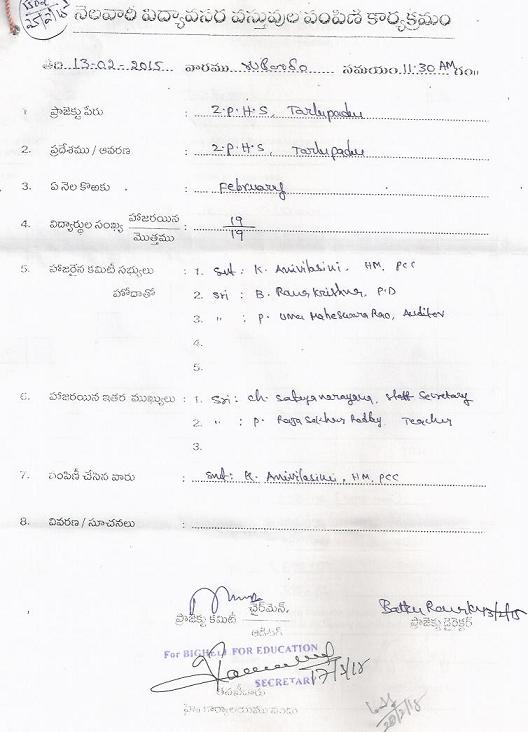 25/2/15
నెలవారీ విద్యావసర వస్తువుల పంపిణీ కార్యక్రమం
తేది 13-02-2015 వారము శుక్రవారం సమయం 11:30 AM గం॥
1. ప్రాజెక్టు పేరు : Z.P.H.S, Tarlupadu
2. ప్రదేశము / ఆవరణ : Z.P.H.S, Tarlupadu
3. ఏ నెల కొఱకు : February
4. విద్యార్థుల సంఖ్య హాజరయిన / మొత్తము : 19 / 19
5. హాజరైన కమిటీ సభ్యులు : 1. Smt: K. HM, PCC
హోదాతో 2. Sri : B. Rama Krishna, P.D
3. " : P. Uma Maheswara Rao, Auditor
4.
5.
6. హాజరయిన ఇతర ముఖ్యులు : 1. Sri : Ch. Satyanarayana, Staff Secretary
2. " : P. Raja Sekhar Reddy Teacher
3.
7. పంపిణీ చేసిన వారు : Smt: K. HM, PCC
8. వివరణ / సూచనలు :
ప్రాజెక్టు కమిటీ చైర్‌మెన్,
ఆడిటర్
ప్రాజెక్టు డైరెక్టర్
For BIGHELP FOR EDUCATION
SECRETARY